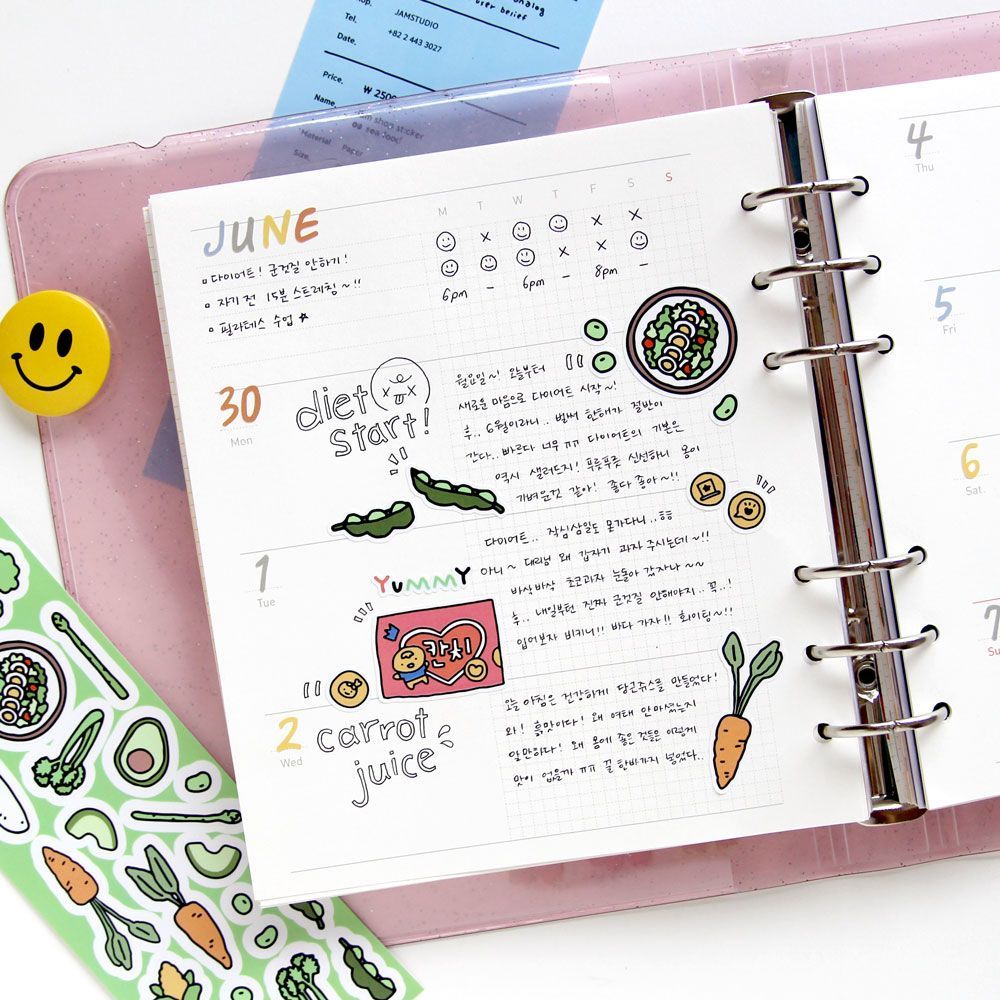 nalog
user belief
JAMSTUDIO
Tel.
+82 2 443 3027
Date.
Price.
₩ 250
Name.
shop sticker
Material Paper
Size.
JUNE
M T W T F S S
다이어트! 군것질 안하기!
자기 전 15분 스트레칭~!!
필라테스 수업
x x x
x x
6pm - 6pm - 8pm -
30
Mon
diet
start!
월요일~! 오늘부터
새로운 마음으로 다이어트 시작~!
후.. 6월이라니.. 벌써 한해가 절반이
간다.. 빠르다 너무 ㅠㅠ 다이어트의 기본은
역시 샐러드지! 푸릇푸릇 신선하니 몸이
가벼운것 같아! 좋다 좋아~!!
1
Tue
YUMMY
칸치
다이어트.. 작심삼일도 못가다니..ㅎㅎ
아니~ 대리님 왜 갑자기 과자 주시는데~!!
바삭바삭 초코과자 눈돌아 갔자나~~
후.. 내일부턴 진짜 군것질 안해야지.. 꼭..!
입어보자 비키니!! 바다 가자!! 화이팅~!!
2
Wed
carrot
juice
오늘 아침은 건강하게 당근쥬스를 만들었다!
와! 흙맛이다! 왜 여태 안마셨는지
알만하다! 왜 몸에 좋은 것들은 이렇게
맛이 없을까 ㅠㅠ 꿀 한바가지 넣었다..
4
Thu
5
Fri
6
Sat.
7
Su